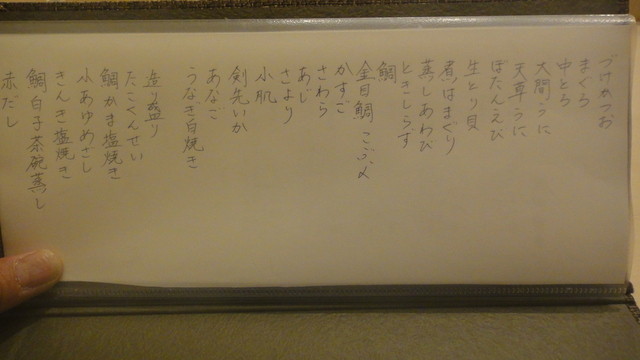 づけかつお
まぐろ
中とろ
大間うに
天草うに
ぼたんえび
生とり貝
煮はまぐり
蒸しあわび
ときしらず
鯛
金目鯛こぶ〆
かすご
さわら
あじ
さより
小肌
剣先いか
あなご
うなぎ白焼き
造り盛り
たこくんせい
鯛かま塩焼き
小あゆめざし
きんき塩焼き
鯛白子茶碗蒸し
赤だし